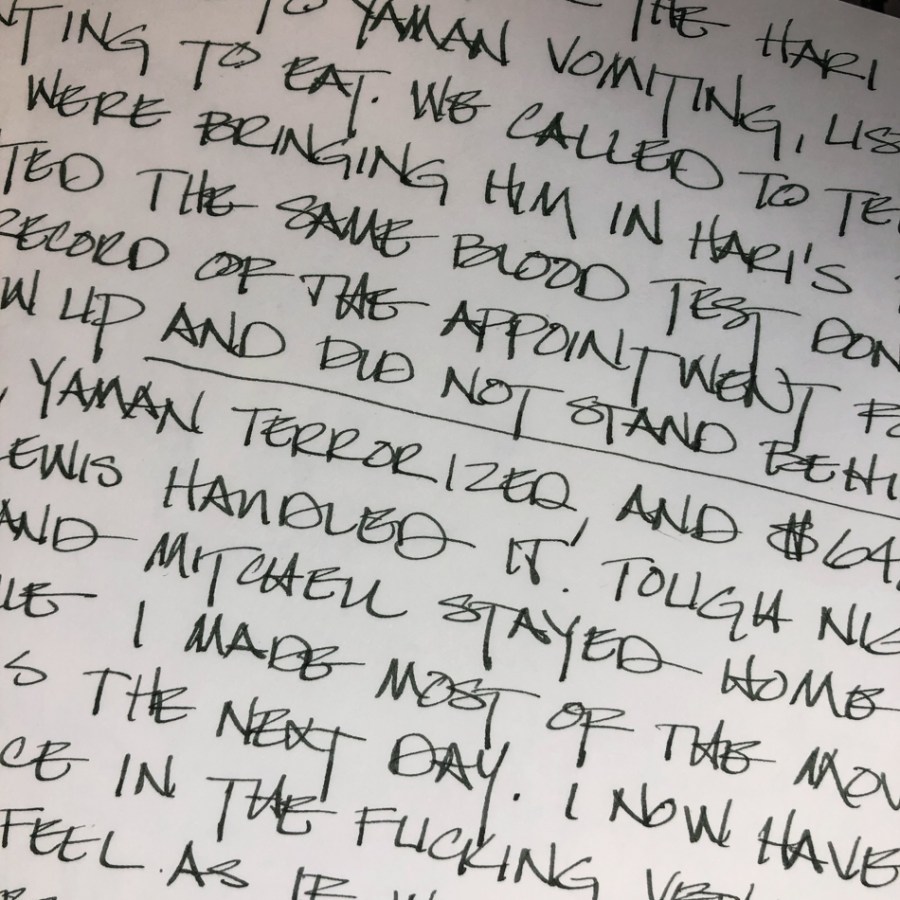 THE HARI
TO YAMAN VOMITING, LIS
NTING TO EAT. WE CALLED TO TE
WERE BRINGING HIM IN HARI'S
TED THE SAME BLOOD TEST DON
RECORD OF THE APPOINTMENT F
W UP AND DID NOT STAND BEHI
YAMAN TERRORIZED, AND $64
EWIS HANDLED IT. TOUGH NIG
AND MITCHELL STAYED HOME
LE I MADE MOST OF THE MOV
S THE NEXT DAY. I NOW HAVE
CE IN THE FUCKING
FEEL AS IF